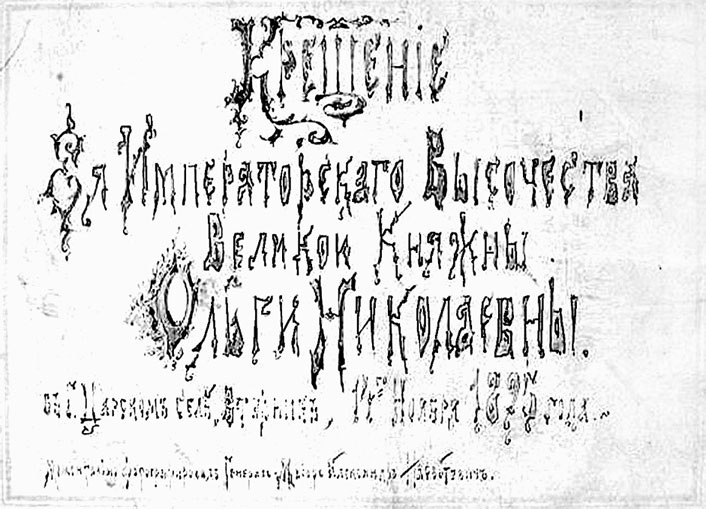 Крещеніе
Ея Императорскаго Высочества
Великой Княжны
Ольги Николаевны.
въ г. Царскомъ Селѣ, Вторникъ, 14го Ноября 1895 года.
Генералъ Маіоръ Александръ Насвѣтевичъ.